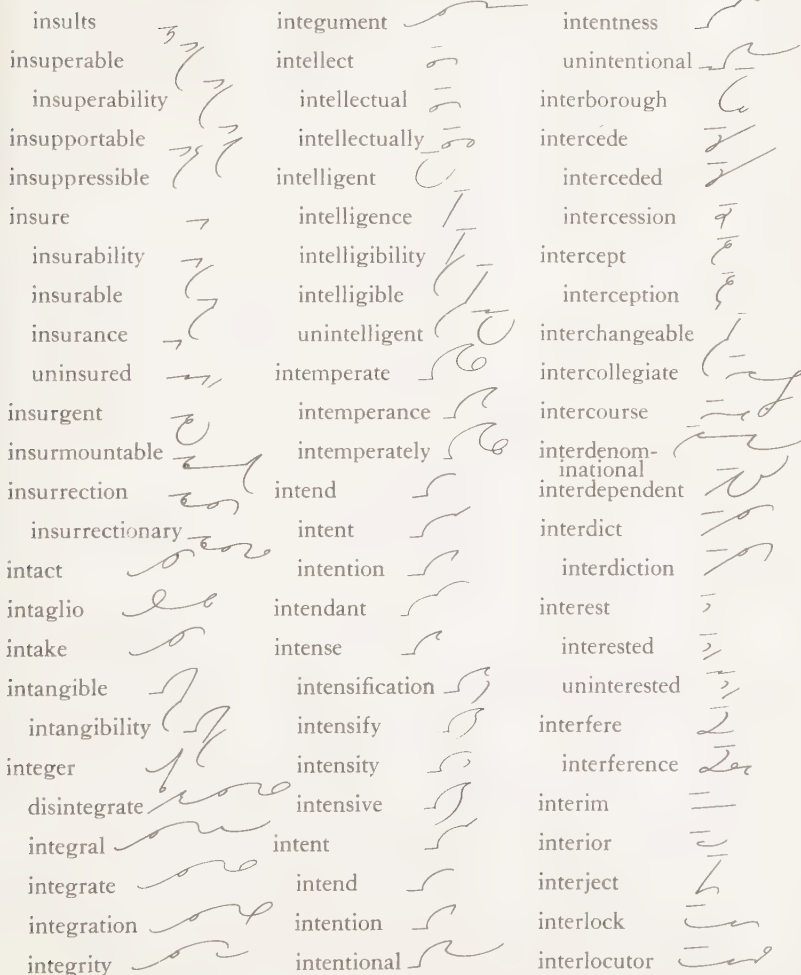 insults
insuperable
insuperability
insupportable
insuppressible
insure
insurability
insurable
insurance
uninsured
insurgent
insurmountable
insurrection
insurrectionary
intact
intaglio
intake
intangible
intangibility
integer
disintegrate
integral
integrate
integration
integrity
integument
intellect
intellectual
intellectually
intelligent
intelligence
intelligibility
intelligible
unintelligent
intemperate
intemperance
intemperately
intend
intent
intention
intendant
intense
intensification
intensify
intensity
intensive
intent
intend
intention
intentional
intentness
unintentional
interborough
intercede
interceded
intercession
intercept
interception
interchangeable
intercollegiate
intercourse
interdenom-
inational
interdependent
interdict
interdiction
interest
interested
uninterested
interfere
interference
interim
interior
interject
interlock
interlocutor